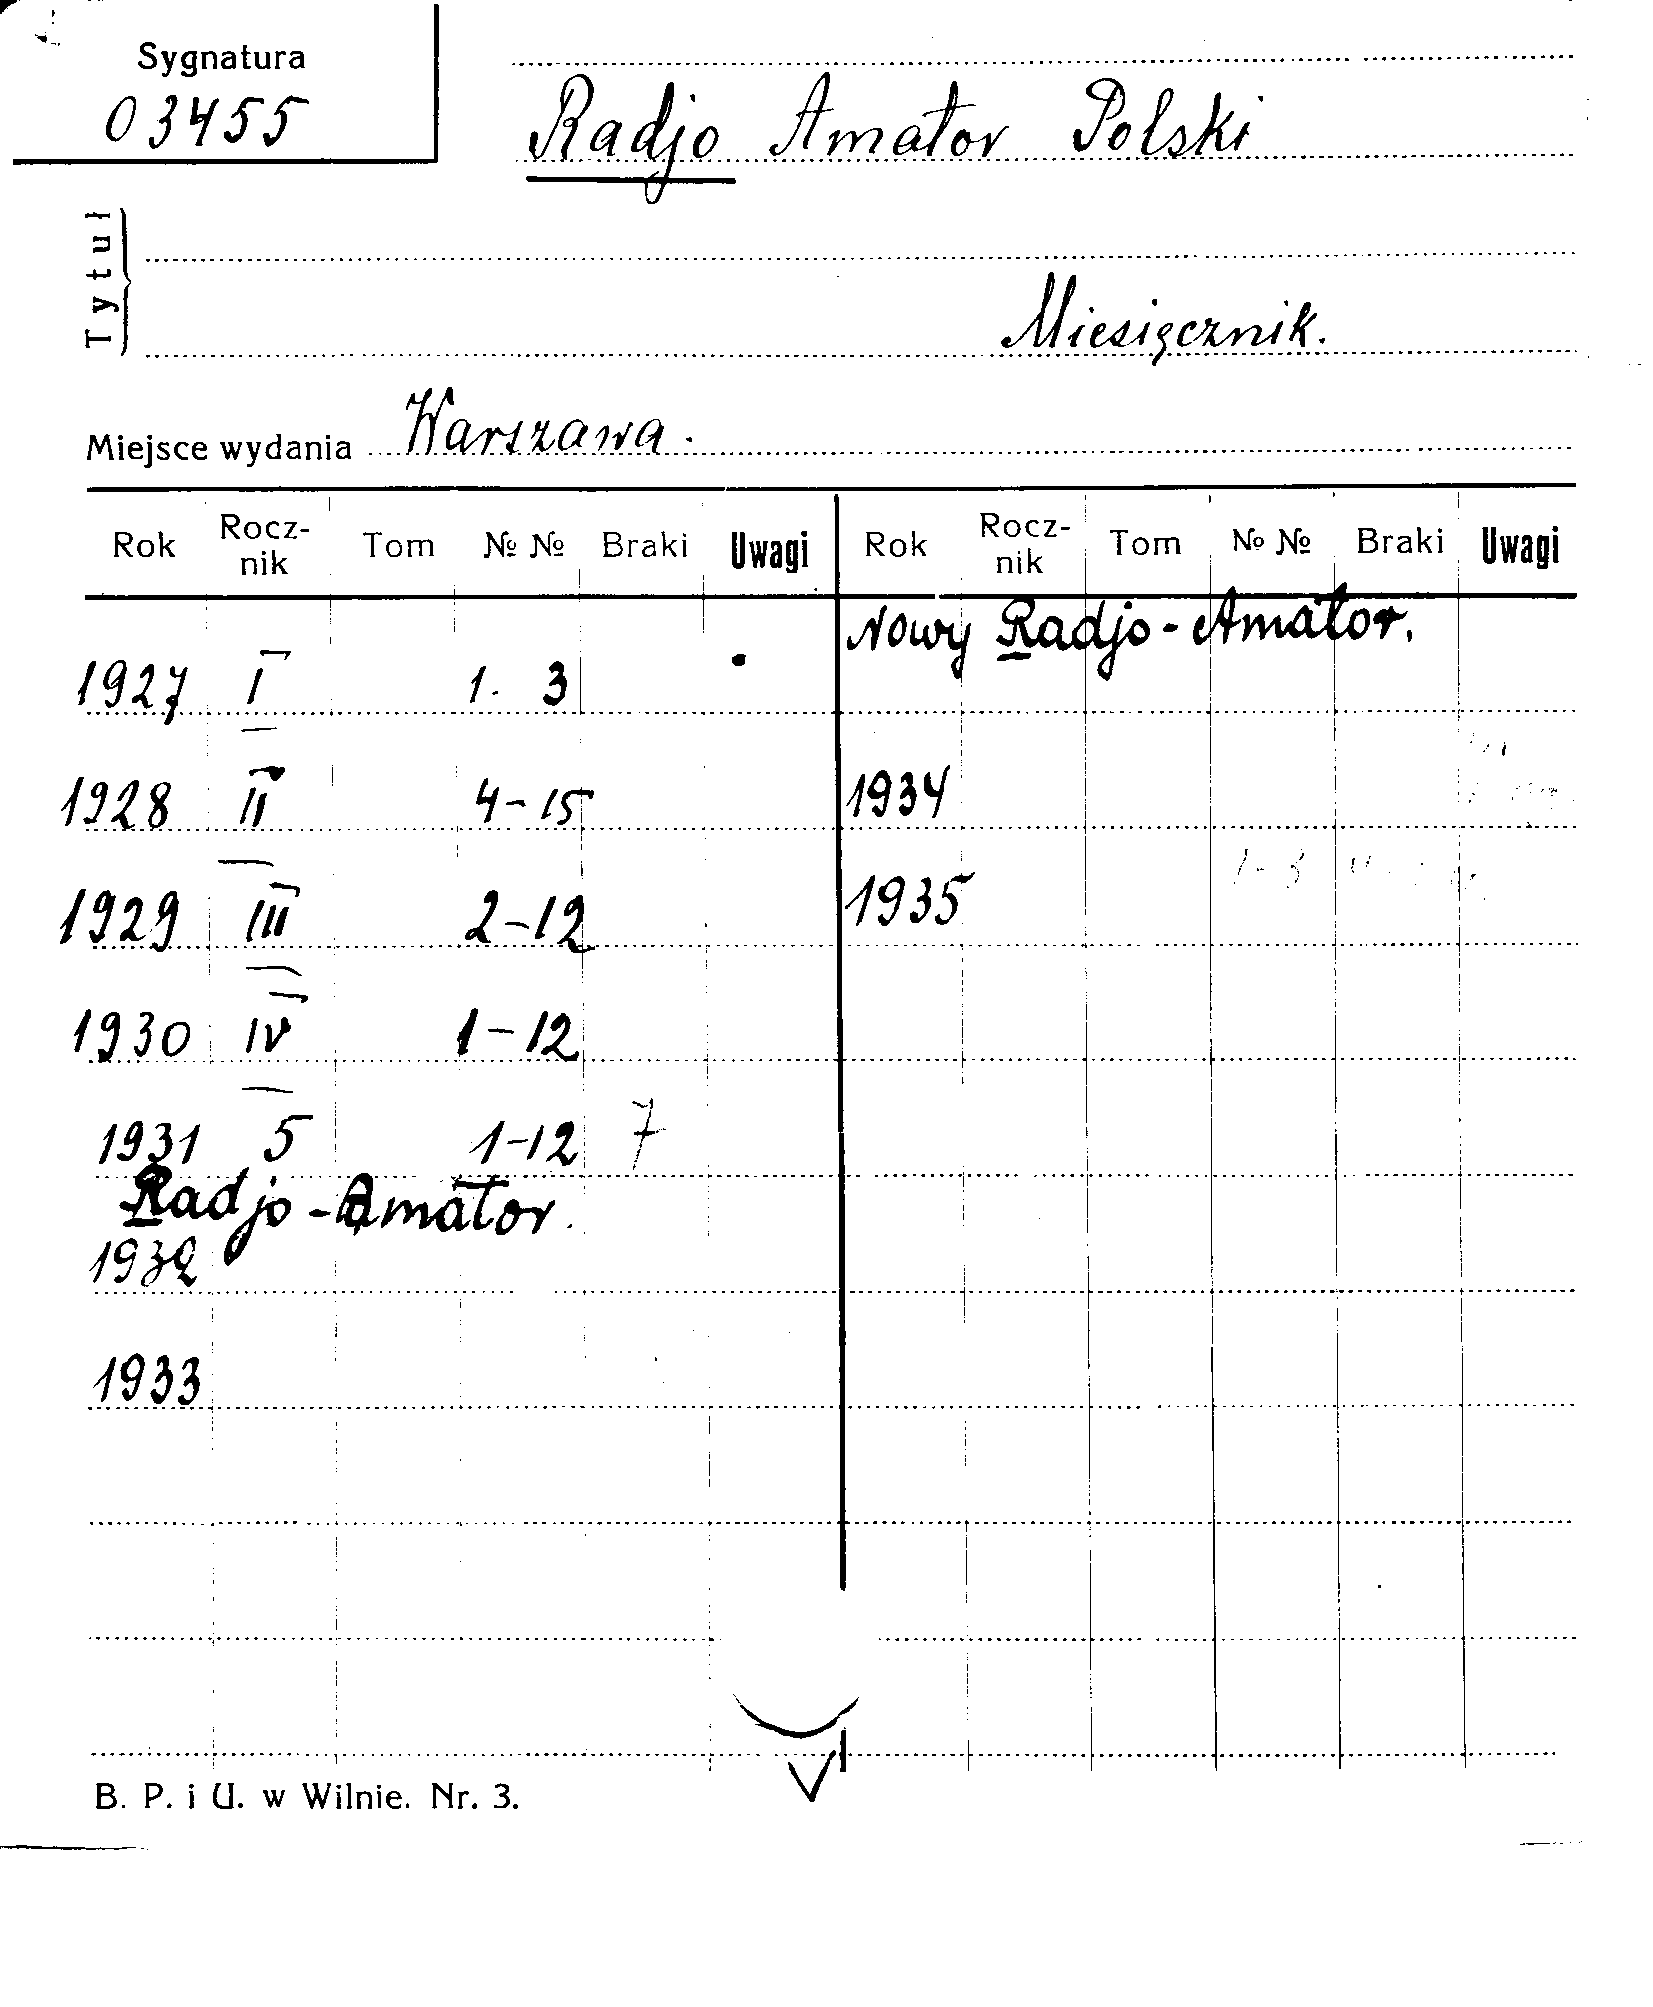 Sygnatura
03455
Radjo Amator Polski
Tytuł
Miesięcznik.
Miejsce wydania Warszawa.
Rok Rocz-nik Tom № № Braki Uwagi Rok Rocz-nik Tom № № Braki Uwagi
Nowy Radjo-Amator.
1927 I 1. 3
1928 II 4-15 1934
1929 III 2-12 1935 1-3
1930 IV 1-12
1931 5 1-12 7
Radjo-Amator.
1932
1933
B. P. i U. w Wilnie. Nr. 3.